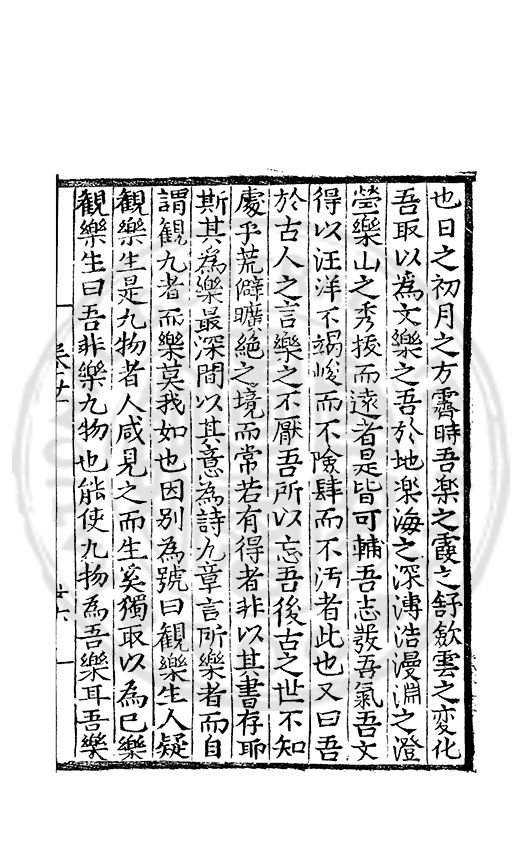 也日之初月之方霽時吾樂之霞之舒歛雲之變化
吾取以為文樂之吾於地樂海之深溥浩漫淵之澄
瑩樂山之秀拔而遠者是皆可輔吾志發吾氣吾文
得以汪洋不竭峻而不險肆而不汚者此也又曰吾
於古人之言樂之不厭吾所以忘吾後古之世不知
處乎荒僻曠絶之境而常若有得者非以其書存耶
斯其為樂最深間以其意為詩九章言所樂者而自
謂觀九者而樂莫我如也因別為號曰觀樂生人疑
觀樂生是九物者人咸見之而生奚獨取以為已樂
觀樂生曰吾非樂九物也能使九物為吾樂耳吾樂